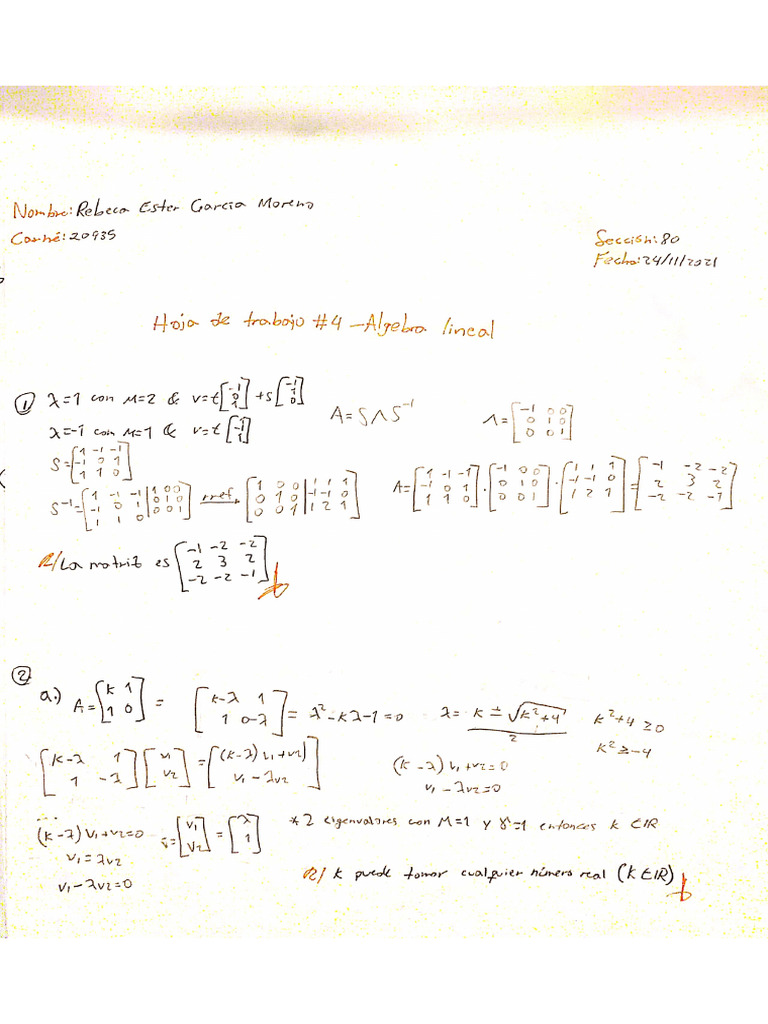 Nombre: Rebeca Ester Garcia Moreno
Carné: 20935
Sección: 80
Fecha: 24/11/2021
Hoja de trabajo #4 – Algebra lineal
① λ=1 con M=2 & v=t[-1 0 1] + s[-1 1 0]
A=SΛS⁻¹
Λ=[-1 0 0; 0 1 0; 0 0 1]
λ=-1 con M=1 & v=t[1 -1 1]
S=[1 -1 -1; -1 0 1; 1 1 0]
S⁻¹=[1 -1 -1 | 1 0 0; -1 0 1 | 0 1 0; 1 1 0 | 0 0 1] rref→ [1 0 0 | 1 1 1; 0 1 0 | -1 -1 0; 0 0 1 | 1 2 1]
A=[1 -1 -1; -1 0 1; 1 1 0]·[-1 0 0; 0 1 0; 0 0 1]·[1 1 1; -1 -1 0; 1 2 1]=[-1 -2 -2; 2 3 2; -2 -2 -1]
R/ La matriz es [-1 -2 -2; 2 3 2; -2 -2 -1]
②
a.) A=[k 1; 1 0] = [k-λ 1; 1 0-λ] = λ²-kλ-1=0
λ= k ± √k²+4 / 2
k²+4 ≥0
k² ≥-4
[k-λ 1; 1 -λ][v1; v2]=[(k-λ)v1+v2; v1-λv2]
(k-λ)v1+v2=0
v1-λv2=0
(k-λ)v1+v2=0
v1=λv2
v1-λv2=0
v=[v1; v2]=[λ; 1]
*2 eigenvalores con M=1 y γ=1 entonces k ∈ ℝ
R/ k puede tomar cualquier número real (k ∈ ℝ)